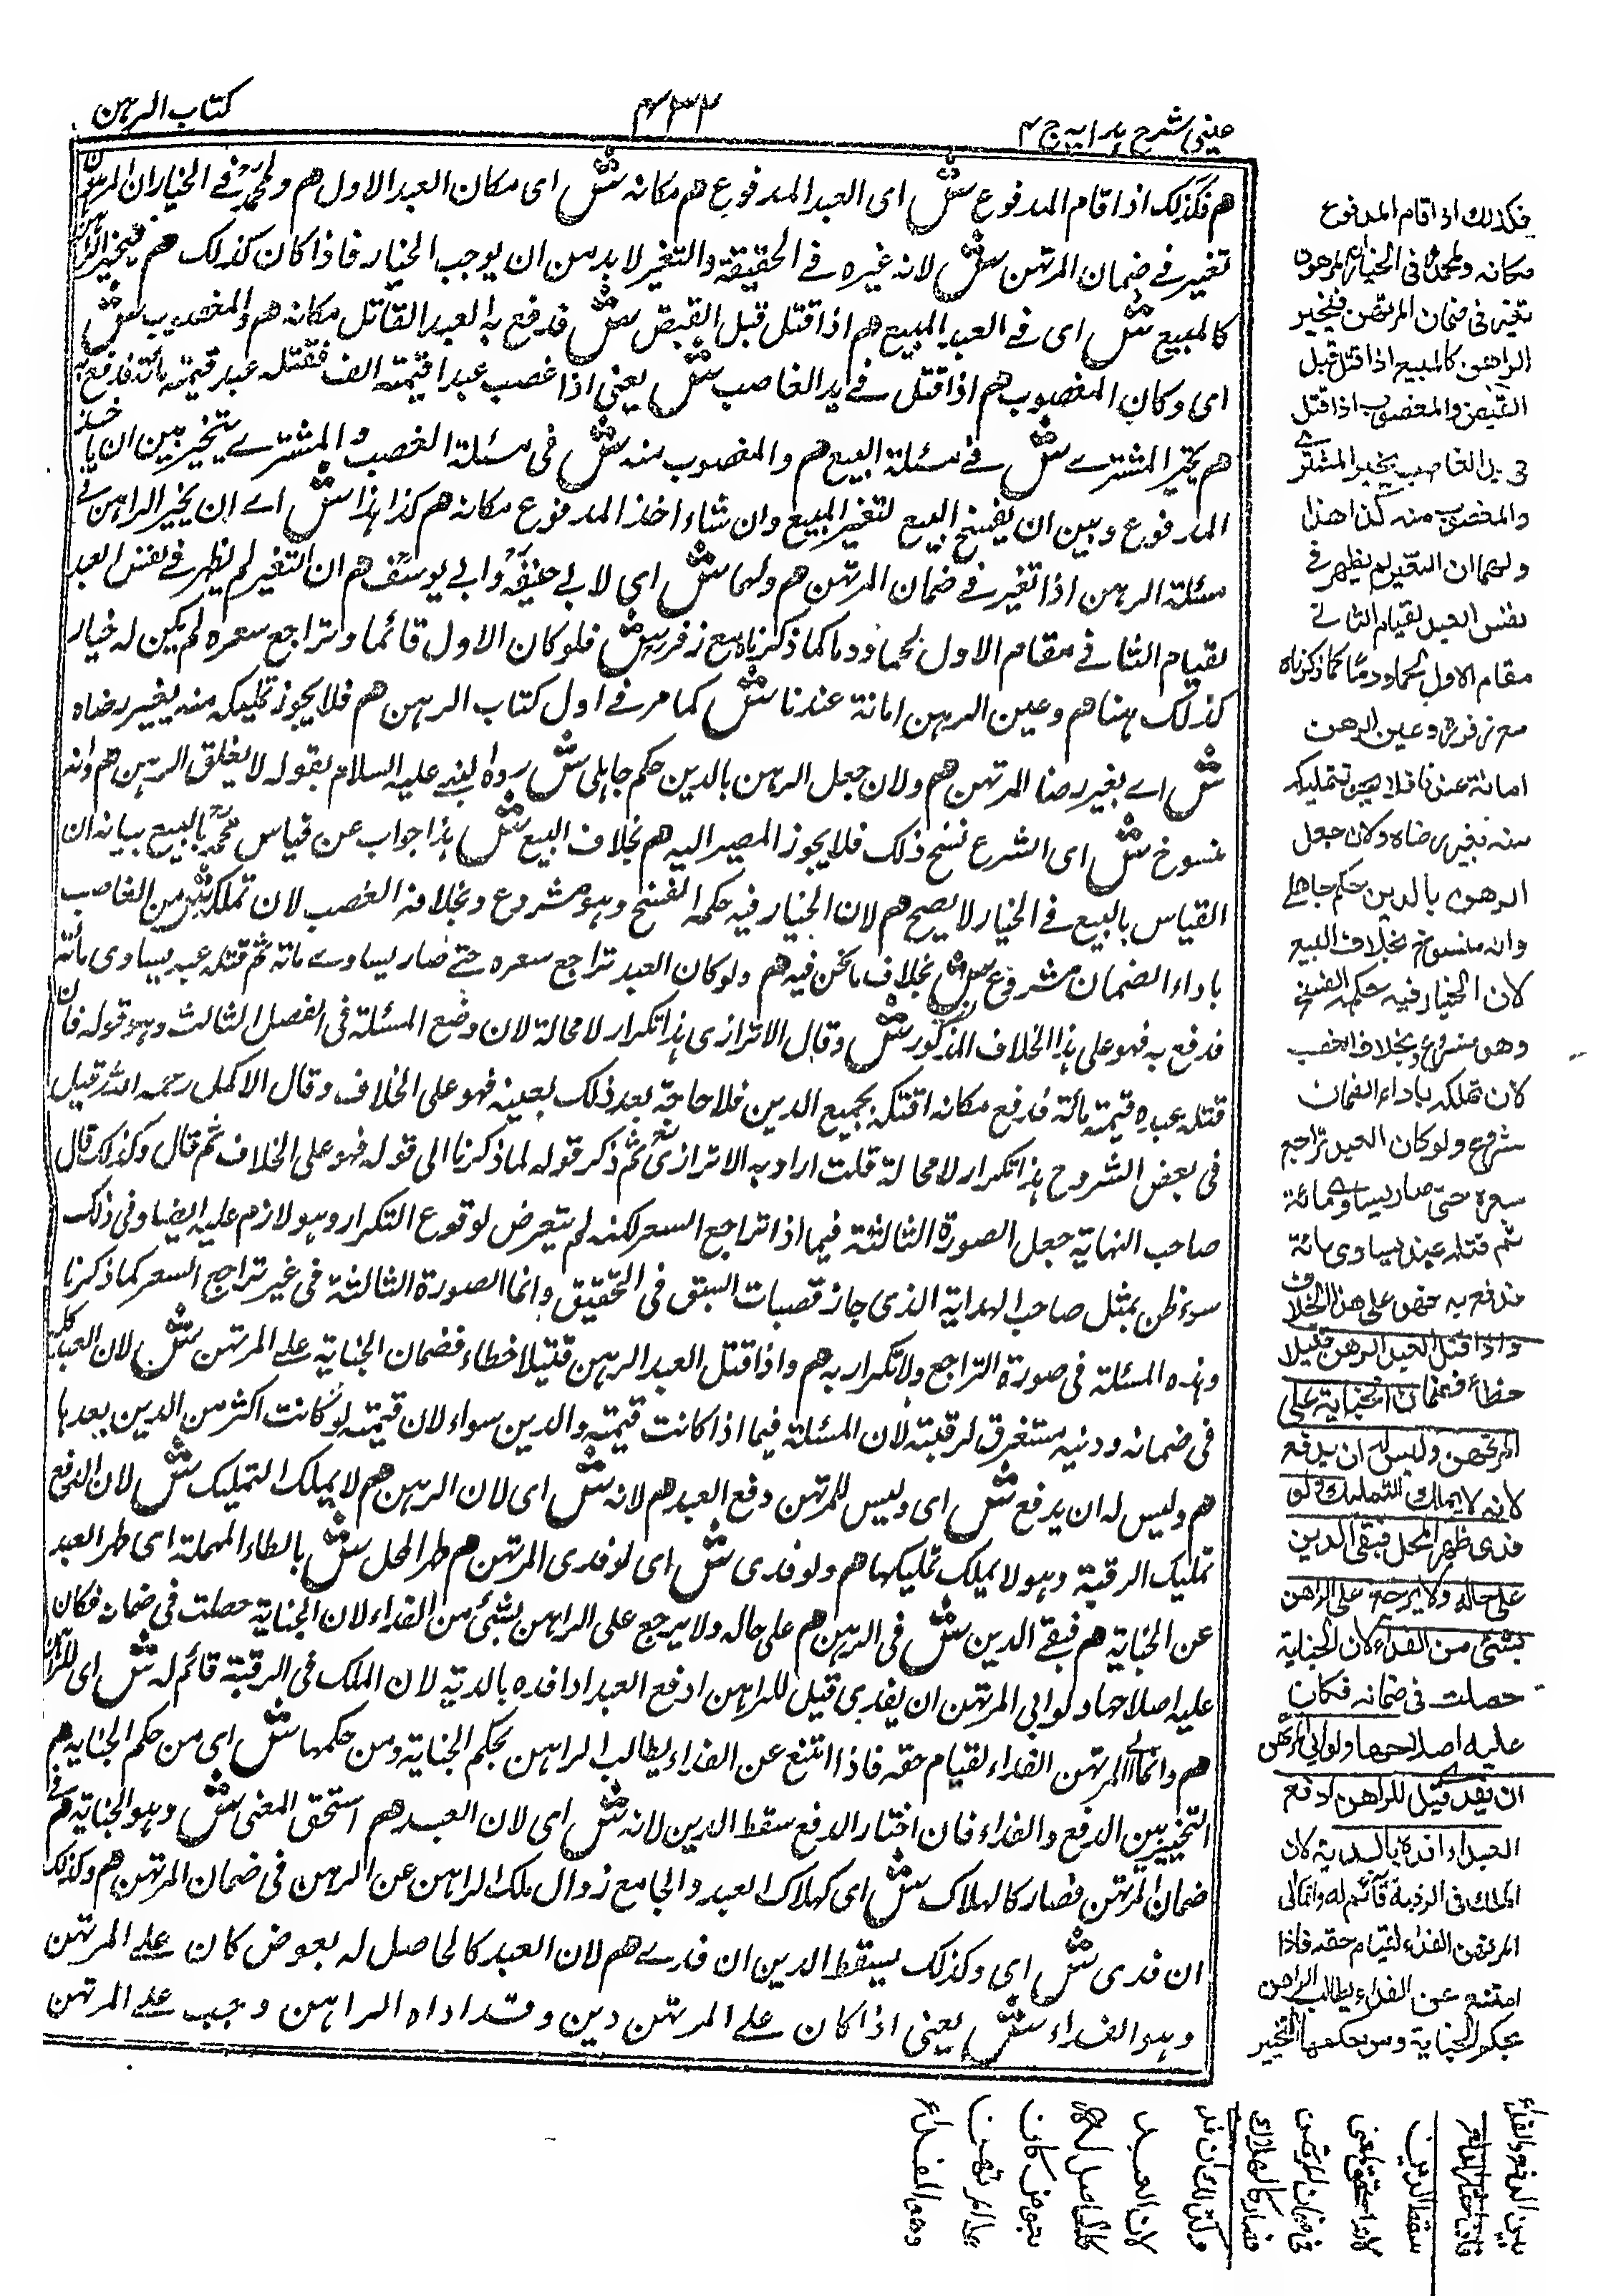 عینی شرح ہدایہ ج ۴
کتاب الرہن
هم فکذلک اذا اقام المدفوع ش ای العبد المدفوع هم مکانه ش ای مکان العبد الاول هم ولمحمد رح فے الخیار ان المرہون
تغیر فے ضمان المرتہن ش لانه غیره فے الحقیقة والتغیر لابد من ان یوجب الخیار فاذا کان کذلک هم فیخیر الراہن
کالمبیع ش ای فے العبد المبیع هم اذا قتل قبل القبض ش فدفع به العبد القاتل مکانه هم والمغصوب ش
ای وکان المغصوب هم اذا قتل فے ید الغاصب ش یعنی اذا غصب عبدا قیمته الف فقتله عبد قیمته مائة فدفع به
هم یخیر المشترے ش فے مسئلة البیع هم والمغصوب منه ش فی مسئلة الغصب والمشترے یتخیر بین ان یاخذ
المدفوع وبین ان یفسخ البیع لتغیر المبیع وان شاء اخذ المدفوع مکانه هم کذا ہذا ش اے ان یخیر الراہن فے
مسئلة الرہن اذا تغیر فے ضمان المرتہن هم ولہما ش ای لابے حنیفة وابے یوسف هم ان التغیر لم یظہر فے نفس العبد
لقیام الثانے مقام الاول لحما ودما کما ذکرناه مع زفر رح ش فلو کان الاول قائما وتراجع سعره لم یکن له خیار
کذلک ہہنا هم وعین الرہن امانة عندنا ش کما مر فے اول کتاب الرہن هم فلا یجوز تملیکه منه بغیر رضاه
ش اے بغیر رضا المرتہن هم ولان جعل الرہن بالدین حکم جاہلی ش رده النبے علیه السلام بقوله لا یغلق الرہن هم وانه
منسوخ ش ای الشرع نسخ ذلک فلا یجوز المصیر الیه هم بخلاف البیع ش ہذا جواب عن قیاس محمد رح بالبیع بیانه ان
القیاس بالبیع فے الخیار لا یصح هم لان الخیار فیه حکمه الفسخ وہو مشروع وبخلاف الغصب لان تملکه ش من الغاصب
باداء الضمان مشروع ش بخلاف ما نحن فیه هم ولو کان العبد تراجع سعره حتے صار یساوے مائة ثم قتله عبد یساوی مائة
فدفع به فہو علی ہذا الخلاف المذکور ش وقال الاترازی ہذا تکرار لا محالة لان وضع المسئلة فی الفصل الثالث وہو قوله فان
قتله عبد قیمته مائة فدفع مکانه افتکه بجمیع الدین فلا حاجة بعد ذلک بعینه فہو علی الخلاف وقال الاکمل رحمه الله قیل
فی بعض الشروح ہذا تکرار لا محالة قلت اراد به الاترازی ثم ذکر قوله لما ذکرنا الی قوله فہو علی الخلاف ثم قال وکذلک قال
صاحب النہایة جعل الصورة الثالثة فیما اذا تراجع السعر لکنه لم یتعرض لوقوع التکرار وہو لازم علیه ایضا وفی ذلک
سوء ظن بمثل صاحب الہدایة الذی حاز قصبات السبق فی التحقیق وانما الصورة الثالثة فی غیر تراجع السعر کما ذکرنا
وہذه المسئلة فی صورة التراجع ولا تکرار به هم واذا قتل العبد الرہن قتیلا خطاء فضمان الجنایة علے المرتہن ش لان العبد کله
فی ضمانه ودینه مستغرق لرقبته لان المسئلة فیما اذا کانت قیمته والدین سواء لان قیمته لو کانت اکثر من الدین بعدہا
هم ولیس له ان یدفع ش ای ولیس للمرتہن دفع العبد هم لانه ش ای لان الرہن هم لا یملک التملیک ش لان الدفع
تملیک الرقبة وہو لا یملک تملیکہا هم ولو فدی ش ای لو فدی المرتہن هم طہر المحل ش بالطاء المہملة ای طہر العبد
عن الجنایة هم فبقے الدین ش فی الرہن هم علی حاله ولا یرجع علی الراہن بشئ من الفداء لان الجنایة حصلت فی ضمانه فکان
علیه اصلاحہا ولو ابی المرتہن ان یفدی قیل للراہن ادفع العبد او افده بالدیة لان الملک فی الرقبة قائم له ش ای للراہن
هم وانما الے المرتہن الفداء لقیام حقه فاذا امتنع عن الفداء یطالب الراہن بحکم الجنایة ومن حکمہا ش ای من حکم الجنایة هم
التخییر بین الدفع والفداء فان اختار الدفع سقط الدین لانه ش ای لان العبد هم استحق لمعنی ش وہو الجنایة هم فے
ضمان المرتہن فصار کالہلاک ش ای کہلاک العبد والجامع زوال ملک الراہن عن الرہن فی ضمان المرتہن هم وکذلک
ان فدی ش ای وکذلک یسقط الدین ان فدے هم لان العبد کالحاصل له بعوض کان علے المرتہن
وہو الفداء ش یعنی اذا کان علے المرتہن دین وقد اداه الراہن وجب علے المرتہن
فکذلك اذا اقام المدفوع
مکانه ولمحمد فی الخیار ان المرهون
تغیر فی ضمان المرتهن فیخیر
الراهن کالمبیع اذا قتل قبل
القبض والمغصوب اذا قتل
فی ید الغاصب یخیر المشتری
والمغصوب منه کذا هذا
ولهما ان التغیر لم یظهر فی
نفس العبد لقیام الثانی
مقام الاول لحما ودما کما ذکرناه
مع زفر وعین الرهن
امانة عندنا فلا یجوز تملیکه
منه بغیر رضاه ولان جعل
الرهن بالدین حکم جاهلی
وانه منسوخ بخلاف البیع
لان الخیار فیه حکمه الفسخ
وهو مشروع وبخلاف الغصب
لان تملکه باداء الضمان
مشروع ولو کان العبد تراجع
سعره حتی صار یساوی مائة
ثم قتله عبد یساوی مائة
فدفع به فهو علی هذا الخلاف
واذا قتل العبد الرهن قتیلا
خطأ فضمان الجنایة علی
المرتهن ولیس له ان یدفع
لانه لا یملك التملیك ولو
فدی طهر المحل فبقی الدین
علی حاله ولا یرجع علی الراهن
بشئ من الفداء لان الجنایة
حصلت فی ضمانه فکان
علیه اصلاحها ولو ابی المرتهن
ان یفدی قیل للراهن ادفع
العبد او افده بالدیة لان
الملك فی الرقبة قائم له وانما الی
المرتهن الفداء لقیام حقه فاذا
امتنع عن الفداء یطالب الراهن
بحکم الجنایة ومن حکمها التخییر
بین الدفع والفداء
فان اختار الدفع
سقط الدین
لانه استحق لمعنی
فی ضمان المرتهن
فصار کالهلاك
وکذلك ان فدی
لان العبد
کالحاصل له
بعوض کان
علی المرتهن
وهو الفداء